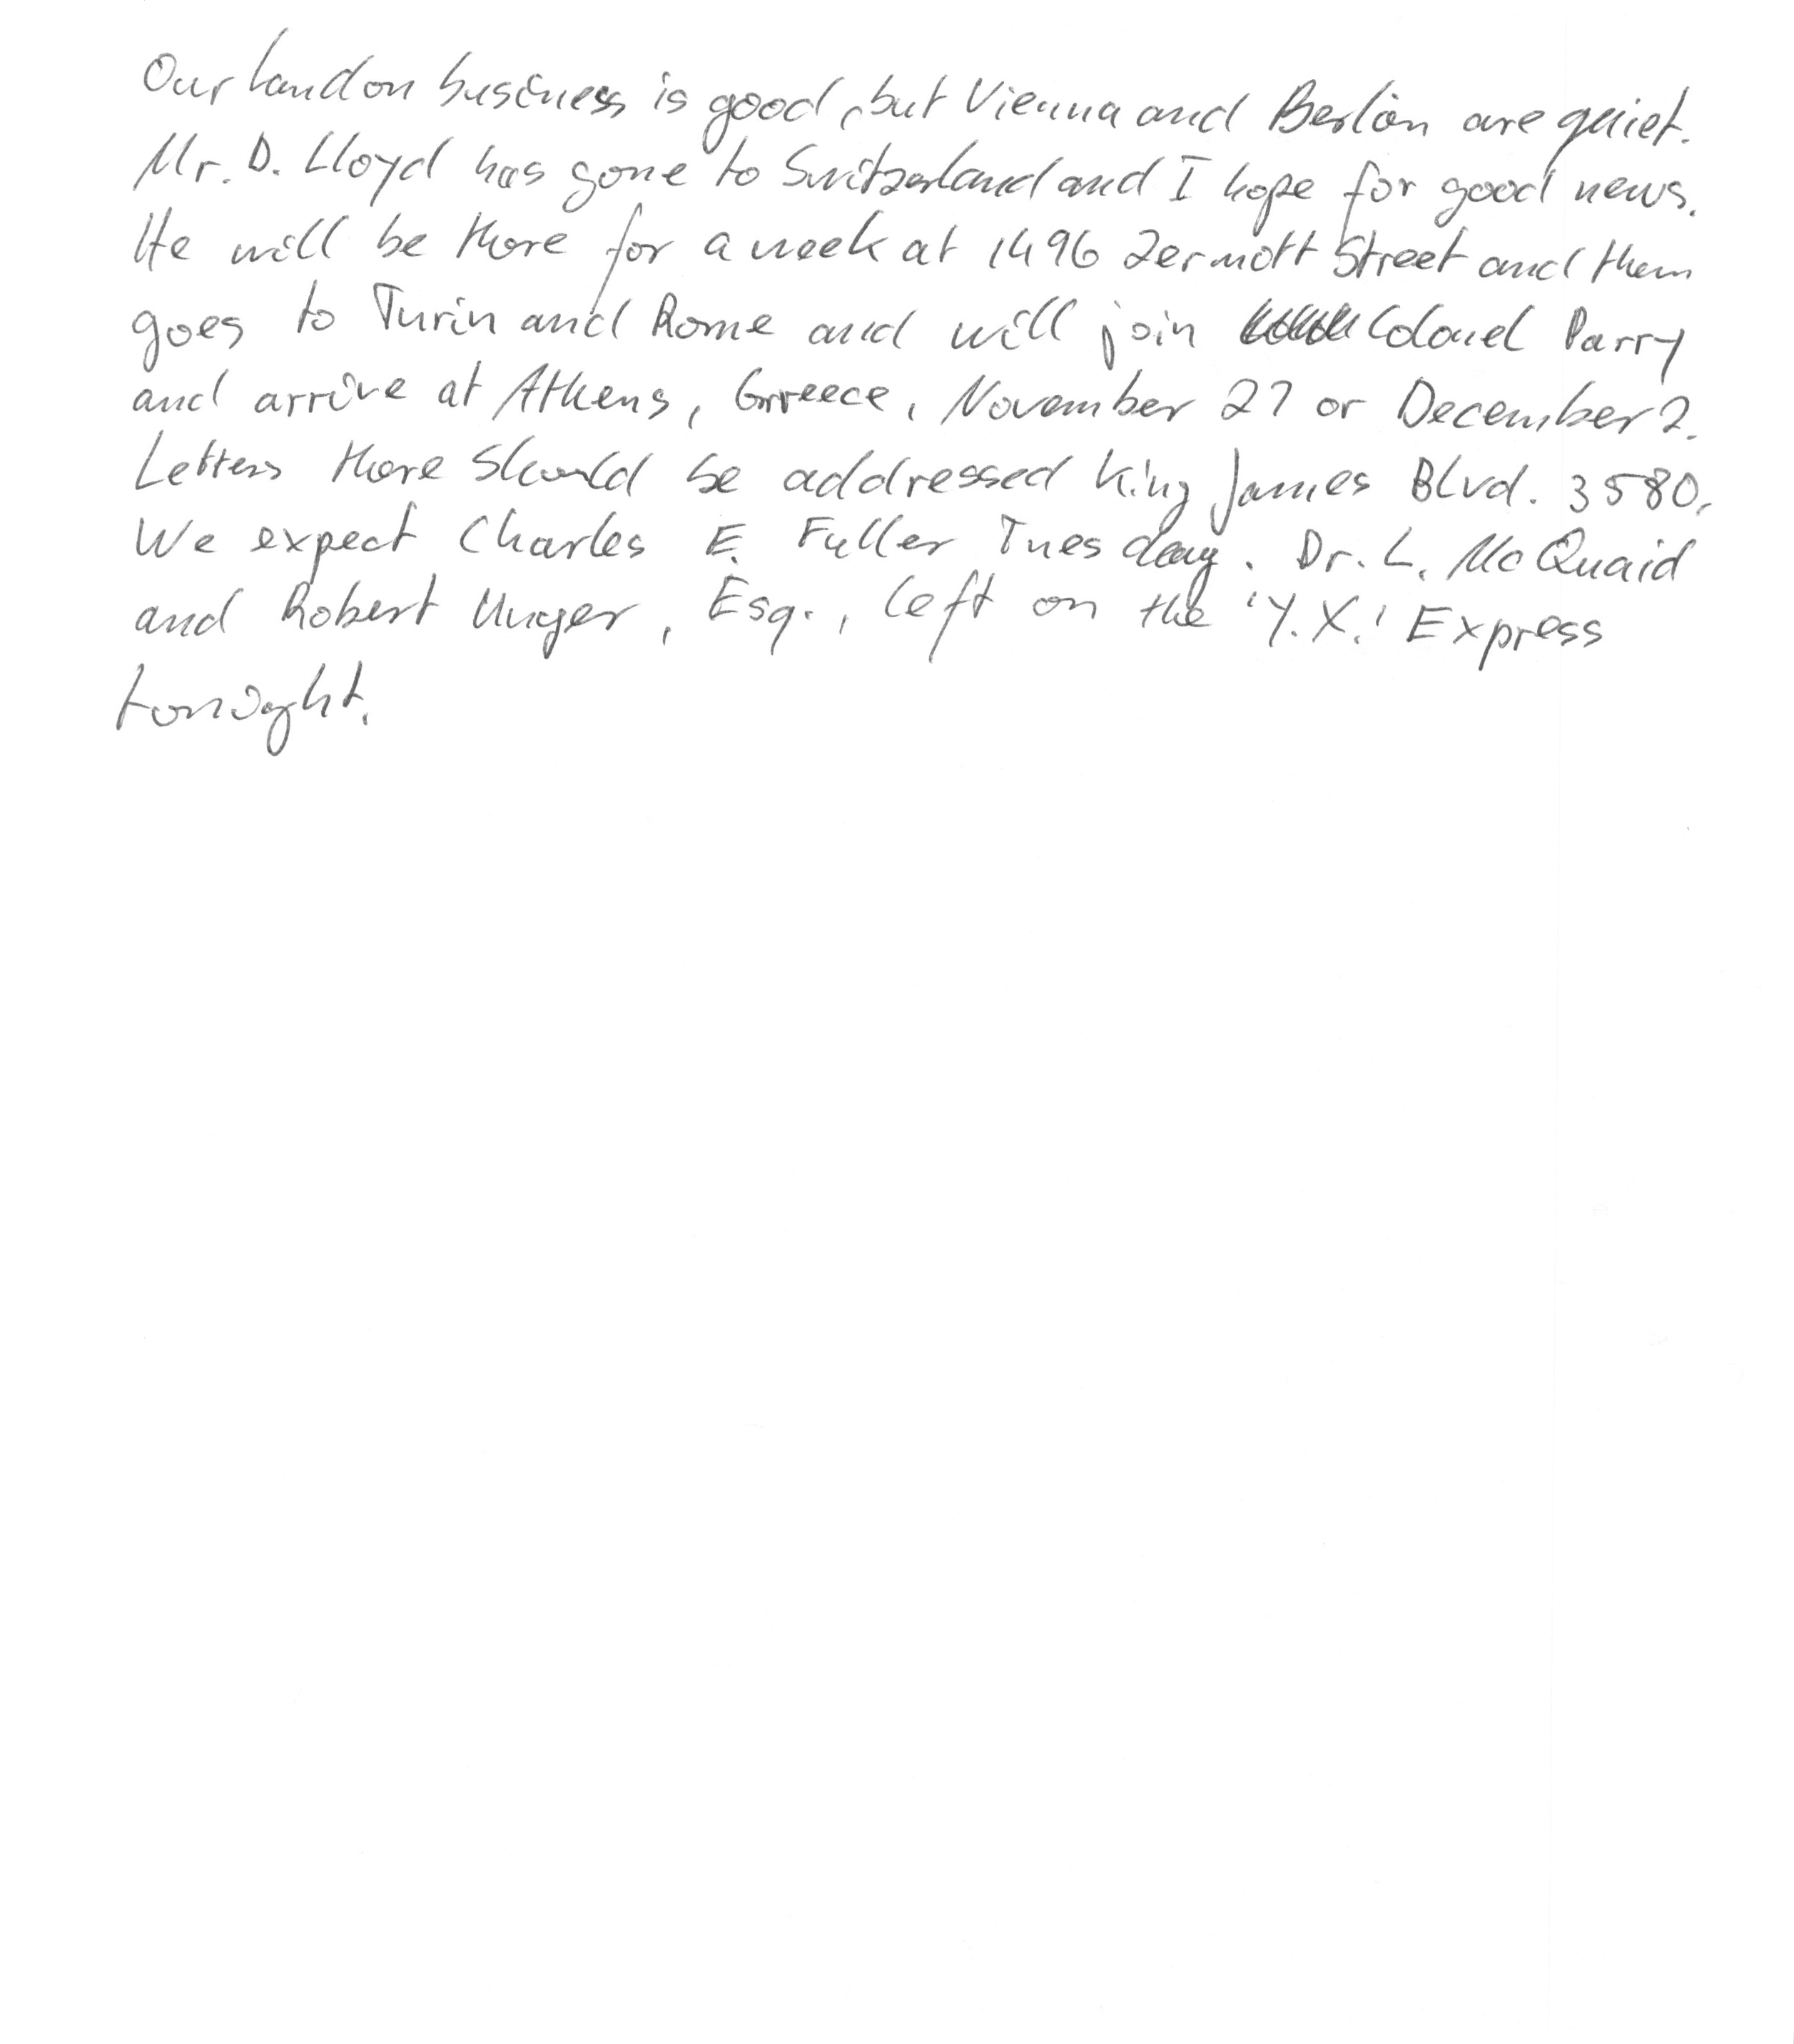 Our London business is good, but Vienna and Berlin are quiet.
Mr. D. Lloyd has gone to Switzerland and I hope for good news.
He will be there for a week at 1496 Zermott Street and then
goes to Turin and Rome and will join Colonel Parry
and arrive at Athens, Greece, November 27 or December 2.
Letters there should be addressed King James Blvd. 3580.
We expect Charles E. Fuller Tuesday. Dr. L. McQuaid
and Robert Unger, Esq., left on the 'Y.X.' Express
tonight.